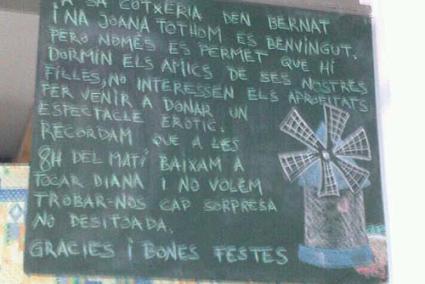 A SA COTXERIA DEN BERNAT
I NA JOANA TOTHOM ES BENVINGUT.
PERO NOMÉS ES PERMET QUE HI
DORMIN ELS AMICS DE SES NOSTRES
FILLES, NO INTERESSEN ELS APROFITATS
PER VENIR A DONAR UN
ESPECTACLE EROTIC.
RECORDAM QUE A LES
8H DEL MATÍ BAIXAM A
TOCAR DIANA I NO VOLEM
TROBAR-NOS CAP SORPRESA
NO DESITJADA.
GRÀCIES I BONES FESTES